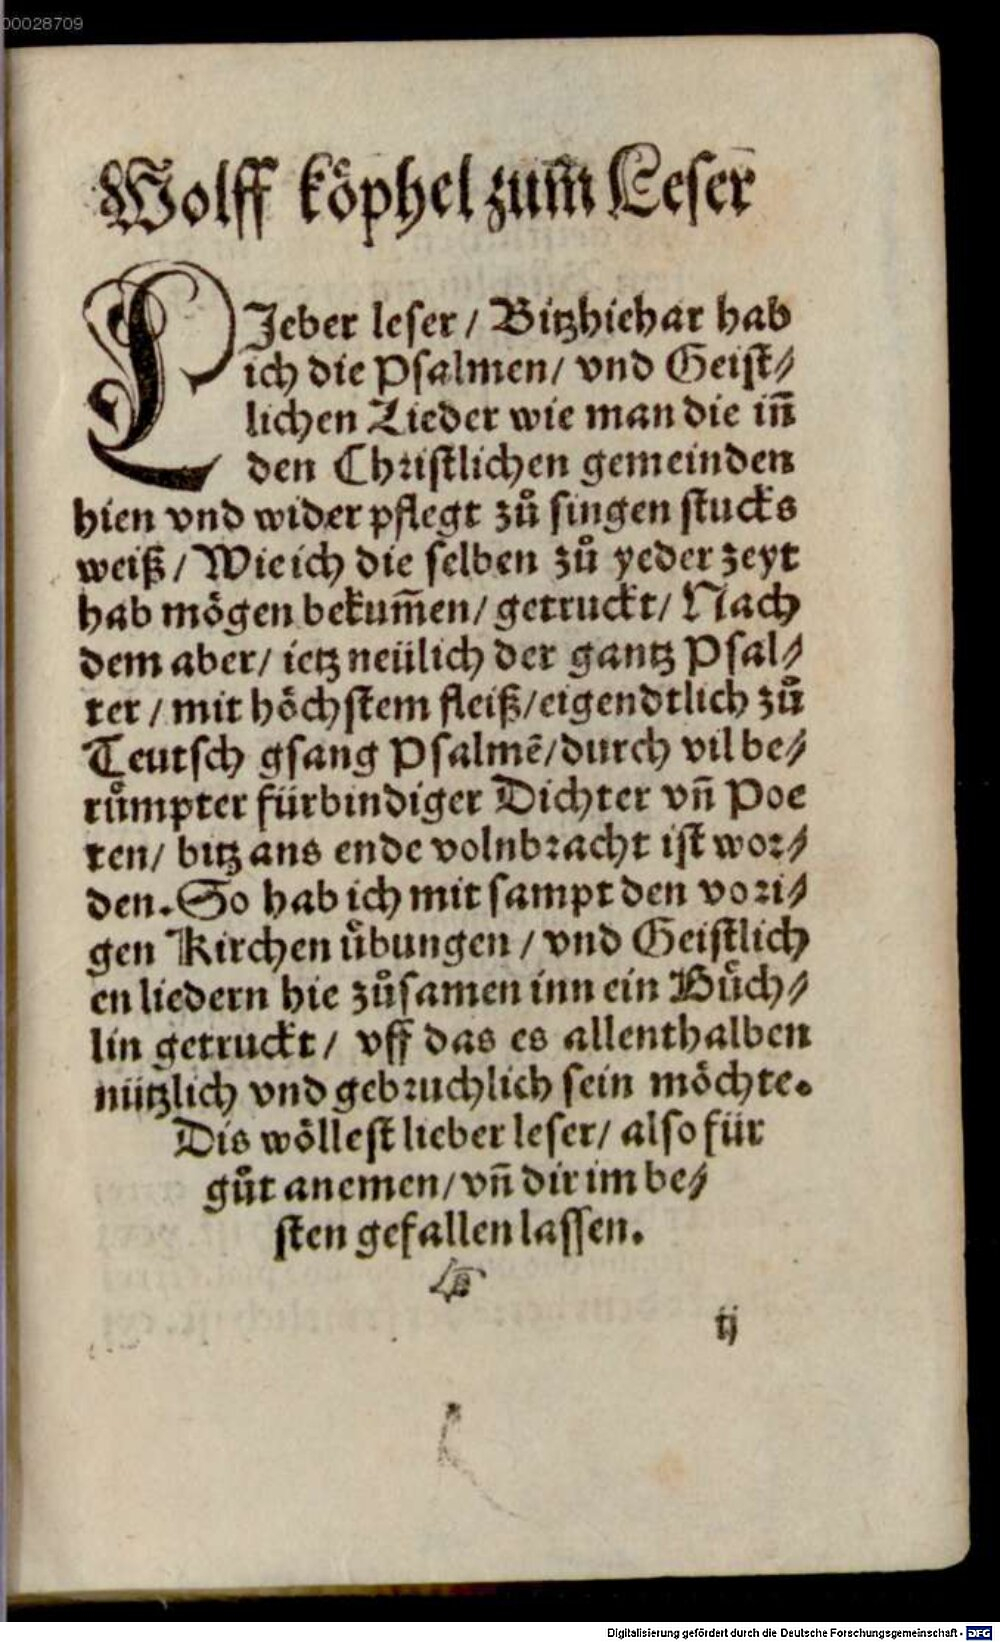 00028709
Wolff köphel zum̄ Leser
LIeber leser / Bitzhiehar hab
ich die Psalmen / vnd Geist⸗
lichen Lieder wie man die iñ
den Christlichen gemeinden
hien vnd wider pflegt zů singen stucks
weiß / Wie ich die selben zů yeder zeyt
hab mögen bekum̄en / getruckt / Nach
dem aber / ietz neülich der gantz Psal⸗
ter / mit höchstem fleiß / eigendtlich zů
Teutsch gsang Psalmẽ / durch vil be⸗
růmpter fürbindiger Dichter vñ Poe
ten / bitz ans ende volnbracht ist wor⸗
den. So hab ich mit sampt den vori⸗
gen Kirchen übungen / vnd Geistlich
en liedern hie zůsamen inn ein Büch⸗
lin getruckt / vff das es allenthalben
nützlich vnd gebruchlich sein möchte.
Dis wöllest lieber leser / also für
gůt anemen / vñ dir im be⸗
sten gefallen lassen.
ij
Digitalisierung gefördert durch die Deutsche Forschungsgemeinschaft - DFG